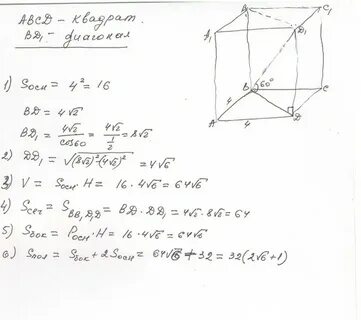 ABCD - квадрат.
BD₁ - диагонал
1) Sосн = 4² = 16
BD = 4√2
BD₁ = 4√2/cos60 = 4√2/(1/2) = 8√2
2) DD₁ = √((8√2)²-(4√2)²) = 4√6
3) V = Sосн · H = 16 · 4√6 = 64√6
4) Sсеч = S BB₁D₁D = BD · DD₁ = 4√2 · 8√2 = 64
5) Sбок = Pосн · H = 16 · 4√6 = 64√6
6) Sпол = Sбок + 2Sосн = 64√6 + 32 = 32(2√6+1)
A₁
D₁
C₁
B
60°
C
4
A
4
D